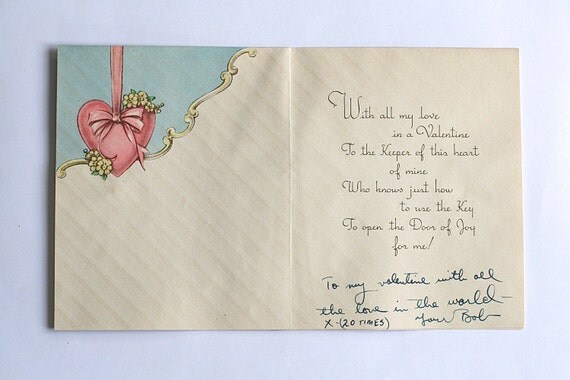 With all my love
in a Valentine
To the Keeper of this heart
of mine
Who knows just how
to use the Key
To open the Door of Joy
for me!
To my valentine with all
the love in the world—
X-(20 TIMES) your Bob